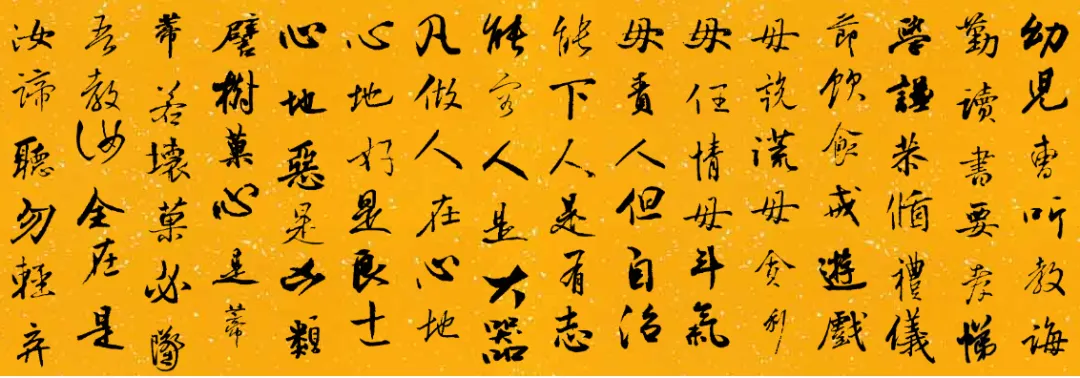 幼兒曹听教誨
勤讀書要孝悌
學謙恭循禮儀
節飲食戒遊戲
毋説謊毋貪利
毋任情毋斗氣
毋責人但自治
能下人是有志
能容人是大器
凡做人在心地
心地好是良士
心地惡是凶類
譬樹菓心是蒂
蒂若壞菓必墜
吾教汝全在是
汝諦聽勿輕弃